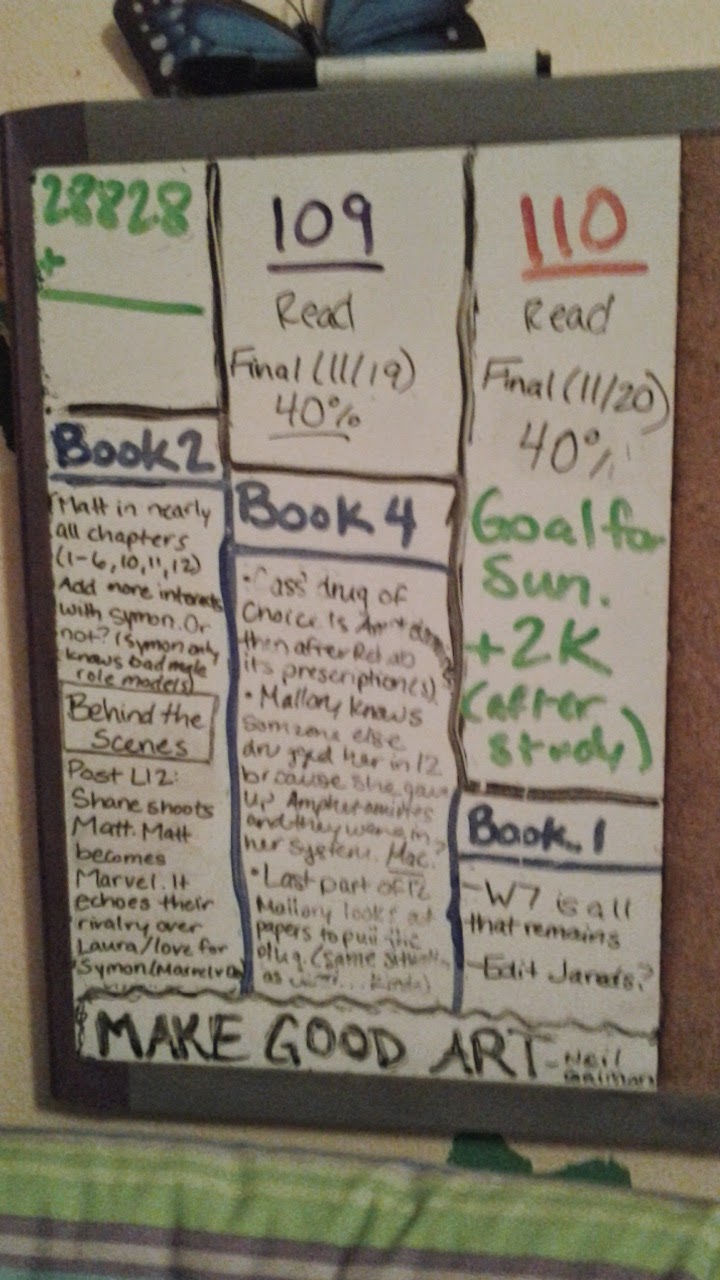 28828
+
Book 2
Matt in nearly
all chapters
(1-6, 10, 11, 12)
Add more interests
with Symon. Or
not? (Symon only
knows bad male
role models)
Behind the
Scenes
Post L12:
Shane shoots
Matt. Matt
becomes
Marvel. It
echoes their
rivalry over
Laura/love for
Symon
109
Read
Final (11/19)
40%
Book 4
• Cass' drug of
Choice is
then after Rehab
its prescription(s)
• Mallory knows
someone else
drugged her in 12
because she gave
up Amphetamines
and they were in
her system. Mac?
• Last part of 12
Mallory looks at
papers to pull the
plug. (same
as kinda)
110
Read
Final (11/20)
40%
Goal for
Sun.
+2K
(after
study)
Book 1
- W7 is all
that remains
- Edit Jarods?
MAKE GOOD ART - Neil
Gaiman